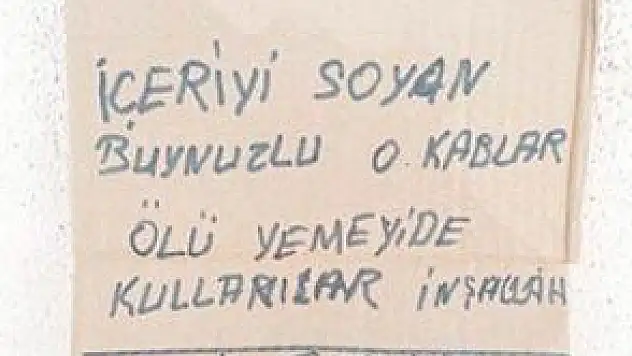 İÇERİYİ SOYAN
BUYNUZLU O.KABLAR
ÖLÜ YEMEYİDE
KULLARILAR İNŞALLAH